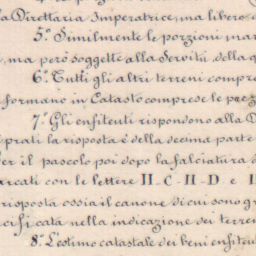 la Direttaria Imperatrice, ma libero e
5.° Similmente le porzioni mar
, ma però soggette alla Servitù della q
6.° Tutti gli altri terreni compre
formano in Catasto comprese le pez
7.° Gli enfiteuti rispondono alla D
prati la risposta è della decima parte
Per il pascolo poi dopo la falciatura d
arcati con le lettere II-C-II-D e I
risposta ossia il canone di cui sono gr
cificata nella indicazione dei terre
8.° L'estimo catastale dei beni enfiteu